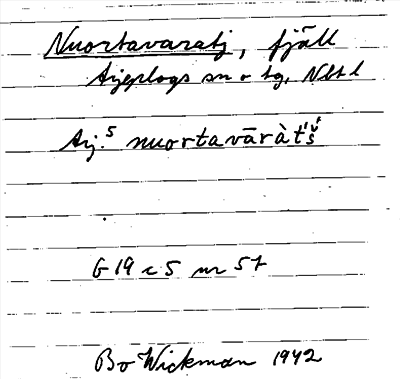 Nuortavaratj, fjäll
Arjeplogs sn o tg, Nbt l
Arj.⁵ nuortavāràt́š́
G 19 c 5 nr 57
Bo Wickman 1942